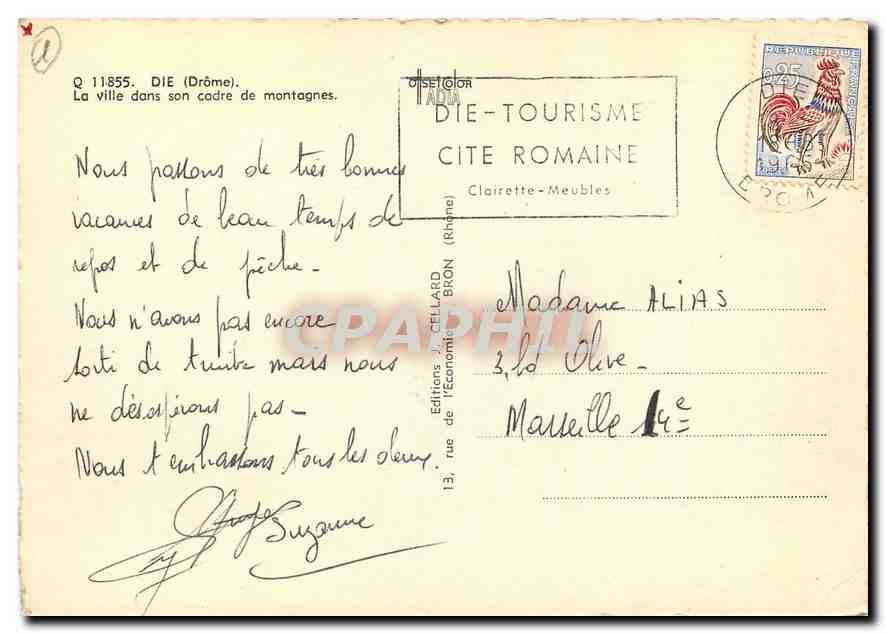 1
Q 11-855. DIE (Drôme).
La ville dans son cadre de montagnes.
OFFSET COLOR
ADIA
DIE-TOURISME
CITE ROMAINE
Clairette-Meubles
REPUBLIQUE FRANÇAISE
0,25
DIE
DROME
Nous passons de très bonnes
vacances de beau temps de
repos et de pêche -
Nous n'avons pas encore
sorti de truite mais nous
ne désespérons pas -
Nous t'embrassons tous les deux.
Suzanne
Editions J. CELLARD
13, rue de l'Economie BRON (Rhône)
Madame ALIAS
3, bd Olive -
Marseille 14e
CPAPHIL